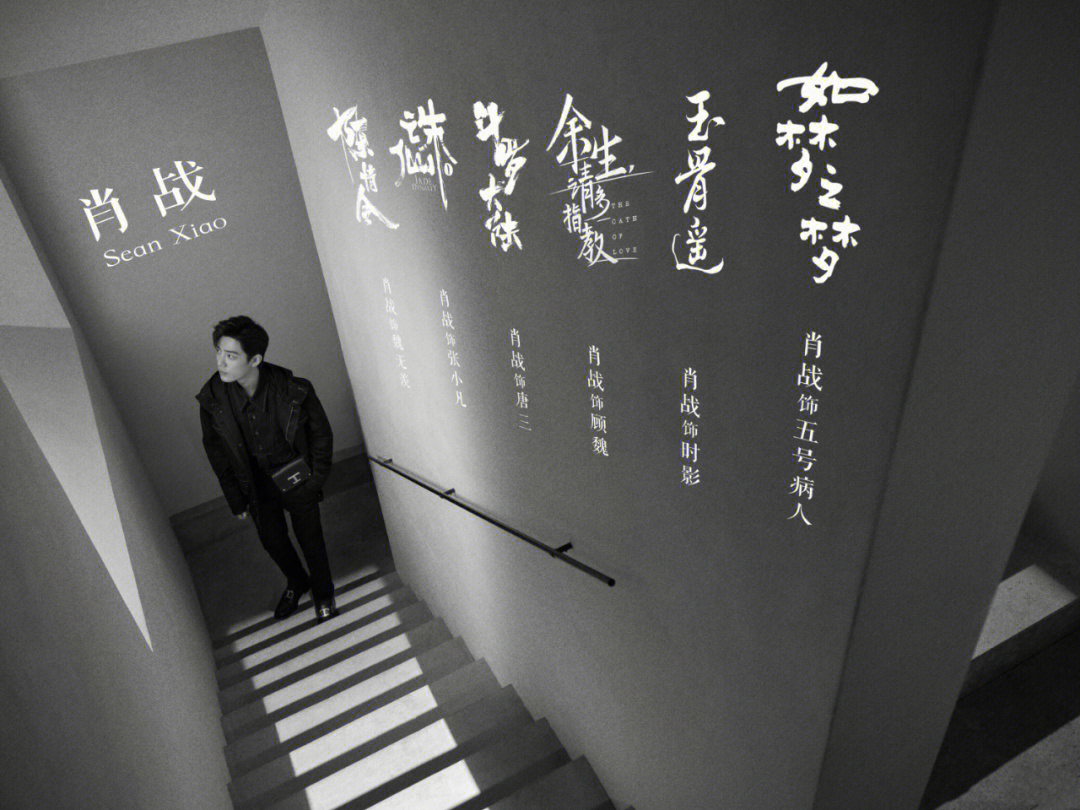 肖战
Sean Xiao
陳情令
肖战饰魏无羡
诛仙I
JADE DYNASTY
肖战饰张小凡
斗罗大陆
肖战饰唐三
余生，
请多
指教
THE
OATH
OF
LOVE
肖战饰顾魏
玉骨遥
肖战饰时影
如梦之梦
肖战饰五号病人